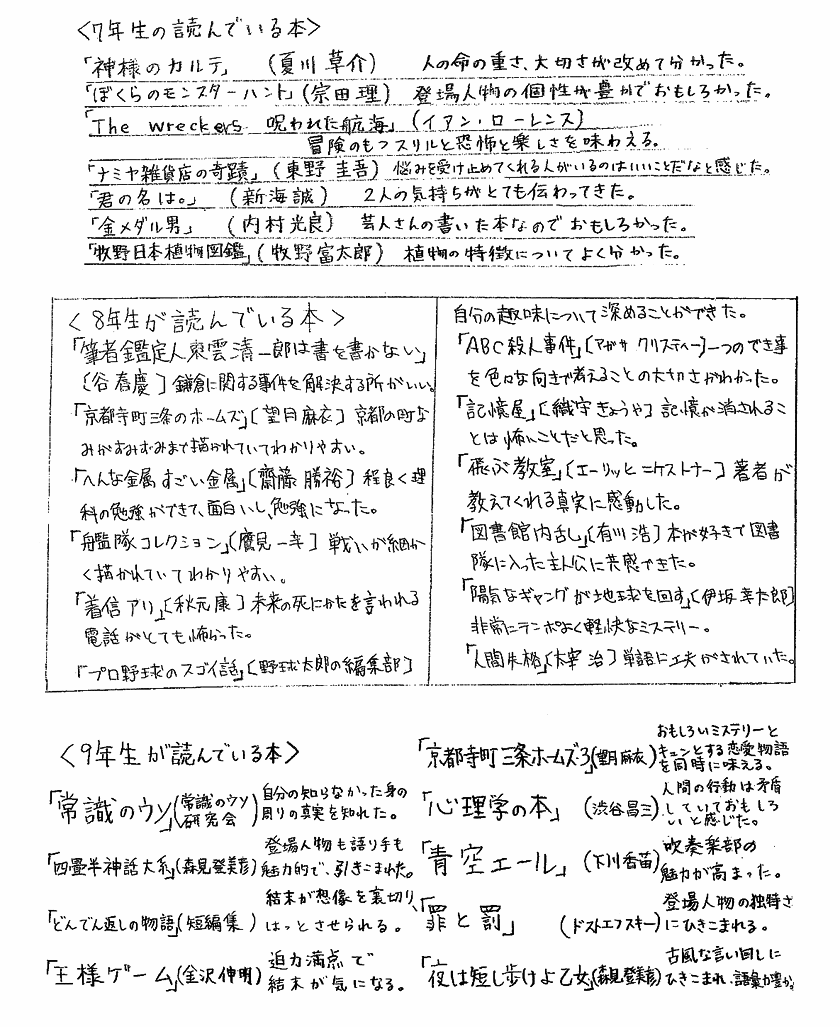 <7年生の読んでいる本>
「神様のカルテ」 (夏川草介) 人の命の重さ、大切さが改めて分かった。
「ぼくらのモンスターハント」(宗田理) 登場人物の個性が豊かでおもしろかった。
「The wreckers 呪われた航海」(イアン・ローレンス)
冒険のもつスリルと恐怖と楽しさを味わえる。
「ナミヤ雑貨店の奇蹟」(東野圭吾) 悩みを受け止めてくれる人がいるのはいいことだなと感じた。
「君の名は。」 (新海誠) 2人の気持ちがとても伝わってきた。
「金メダル男」 (内村光良) 芸人さんの書いた本なのでおもしろかった。
「牧野日本植物図鑑」(牧野富太郎) 植物の特徴についてよく分かった。
<8年生が読んでいる本>
「筆者鑑定人東雲清一郎は書を書かない」
〔谷春慶〕鎌倉に関する事件を解決する所がいい。
「京都寺町三条のホームズ」〔望月麻衣〕京都の町な
みがすみずみまで描かれていてわかりやすい。
「へんな金属 すごい金属」〔齋藤勝裕〕程良く理
科の勉強ができて、面白いし、勉強になった。
「艦隊コレクション」〔鷹見一幸〕戦いが細か
く描かれていてわかりやすい。
「着信アリ」〔秋元康〕未来の死にかたを言われる
電話がとても怖かった。
「プロ野球のスゴイ話」〔野球太郎の編集部〕
自分の趣味について深めることができた。
「ABC殺人事件」〔アガサ クリスティー〕一つのでき事
を色々な向きで考えることの大切さがわかった。
「記憶屋」〔織守きょうや〕記憶が消されるこ
とは怖いことだと思った。
「飛ぶ教室」〔エーリッヒ ニケストナー〕著者が
教えてくれる真実に感動した。
「図書館内乱」〔有川浩〕本が好きで図書
隊に入った主人公に共感できた。
「陽気なギャングが地球を回す」〔伊坂幸太郎〕
非常にテンポよく軽快なミステリー。
「人間失格」〔太宰治〕単語に工夫がされていた。
<9年生が読んでいる本>
「常識のウソ」(常識のウソ研究会) 自分の知らなかった身の
周りの真実を知れた。
「四畳半神話大系」(森見登美彦) 登場人物も語り手も
魅力的で、引きこまれた。
「どんでん返しの物語」(短編集) 結末が想像を裏切り、
はっとさせられる。
「王様ゲーム」(金沢伸明) 迫力満点で
結末が気になる。
「京都寺町三条ホームズ・3」(望月麻衣) おもしろいミステリーと
キュンとする恋愛物語
を同時に味える。
「心理学の本」 (渋谷昌三) 人間の行動は矛盾
していておもしろ
いと感じた。
「青空エール」 (下川香苗) 吹奏楽部の
魅力が高まった。
「罪と罰」 (ドストエフスキー) 登場人物の独特さ
にひきこまれる。
「夜は短し歩けよ乙女」(森見登美彦) 古風な言い回しに
ひきこまれ、語彙力豊か。